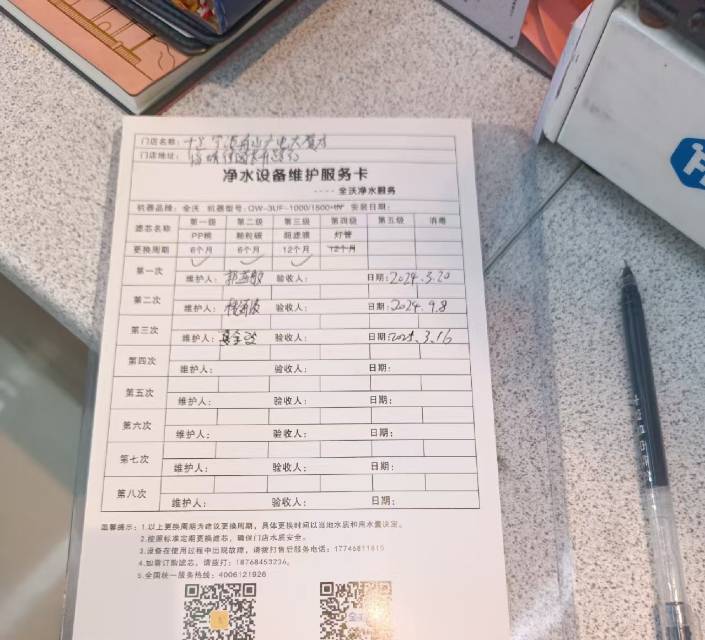 门店名称:
门店地址:
净水设备维护服务卡
---- 全沃净水服务
机器品牌: 全沃 机器型号: QW-3UF-1000/1500 安装日期:
滤芯名称 第一级 第二级 第三级 第四级 第五级 消毒
PP棉 颗粒碳 超滤膜 灯管
更换周期 6个月 6个月 12个月 12个月
第一次
维护人: 验收人: 日期: 2024.3.20
第二次
维护人: 验收人: 日期: 2024.9.8
第三次
维护人: 验收人: 日期: 2025.3.16
第四次
维护人: 验收人: 日期:
第五次
维护人: 验收人: 日期:
第六次
维护人: 验收人: 日期:
第七次
维护人: 验收人: 日期:
第八次
维护人: 验收人: 日期:
温馨提示: 1.以上更换周期为建议更换周期，具体更换时间以当地水质和用水量决定。
2.按照标准定期更换滤芯，确保门店水质安全。
3.设备在使用过程中出现故障，请拨打售后服务电话: 17746811815
4.如需订购滤芯，请拨打: 18768453236。
5.全国统一服务热线: 4006121926